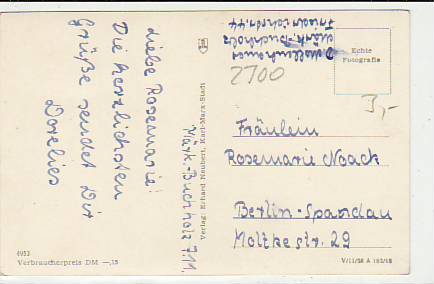 Märk. Buchholz 7.11.
Liebe Rosemarie!
Die herzlichsten
Grüße sendet Dir
Dorelies
Märk. Buchholz
2700
Echte
Fotografie
3,-
Fräulein
Rosemarie Noack
Berlin-Spandau
Moltkestr. 29
Verlag: Erhard Neubert, Karl-Marx-Stadt
4953
Verbraucherpreis DM —,15